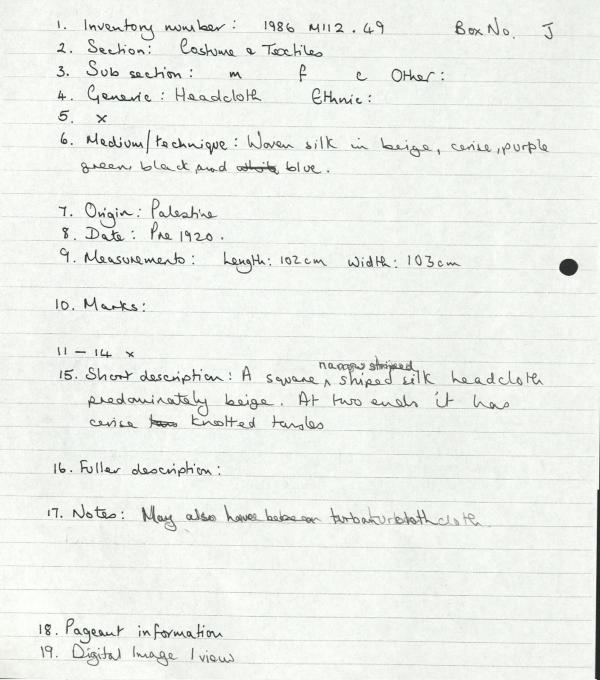 1. Inventory number: 1986 M112.49 Box No. J
2. Section: Costume & Textiles
3. Sub section: m f c Other:
4. Generic: Headcloth Ethnic:
5. x
6. Medium/technique: Woven silk in beige, cerise, purple
green, black and blue.
7. Origin: Palestine
8. Date: Pre 1920.
9. Measurements: Length: 102cm Width: 103cm
10. Marks:
11 – 14 x
narrow striped
15. Short description: A square striped silk headcloth
predominately beige. At two ends it has
cerise knotted tassles
16. Fuller description:
17. Notes: May also have cloth
18. Pageant information
19. Digital Image 1 view